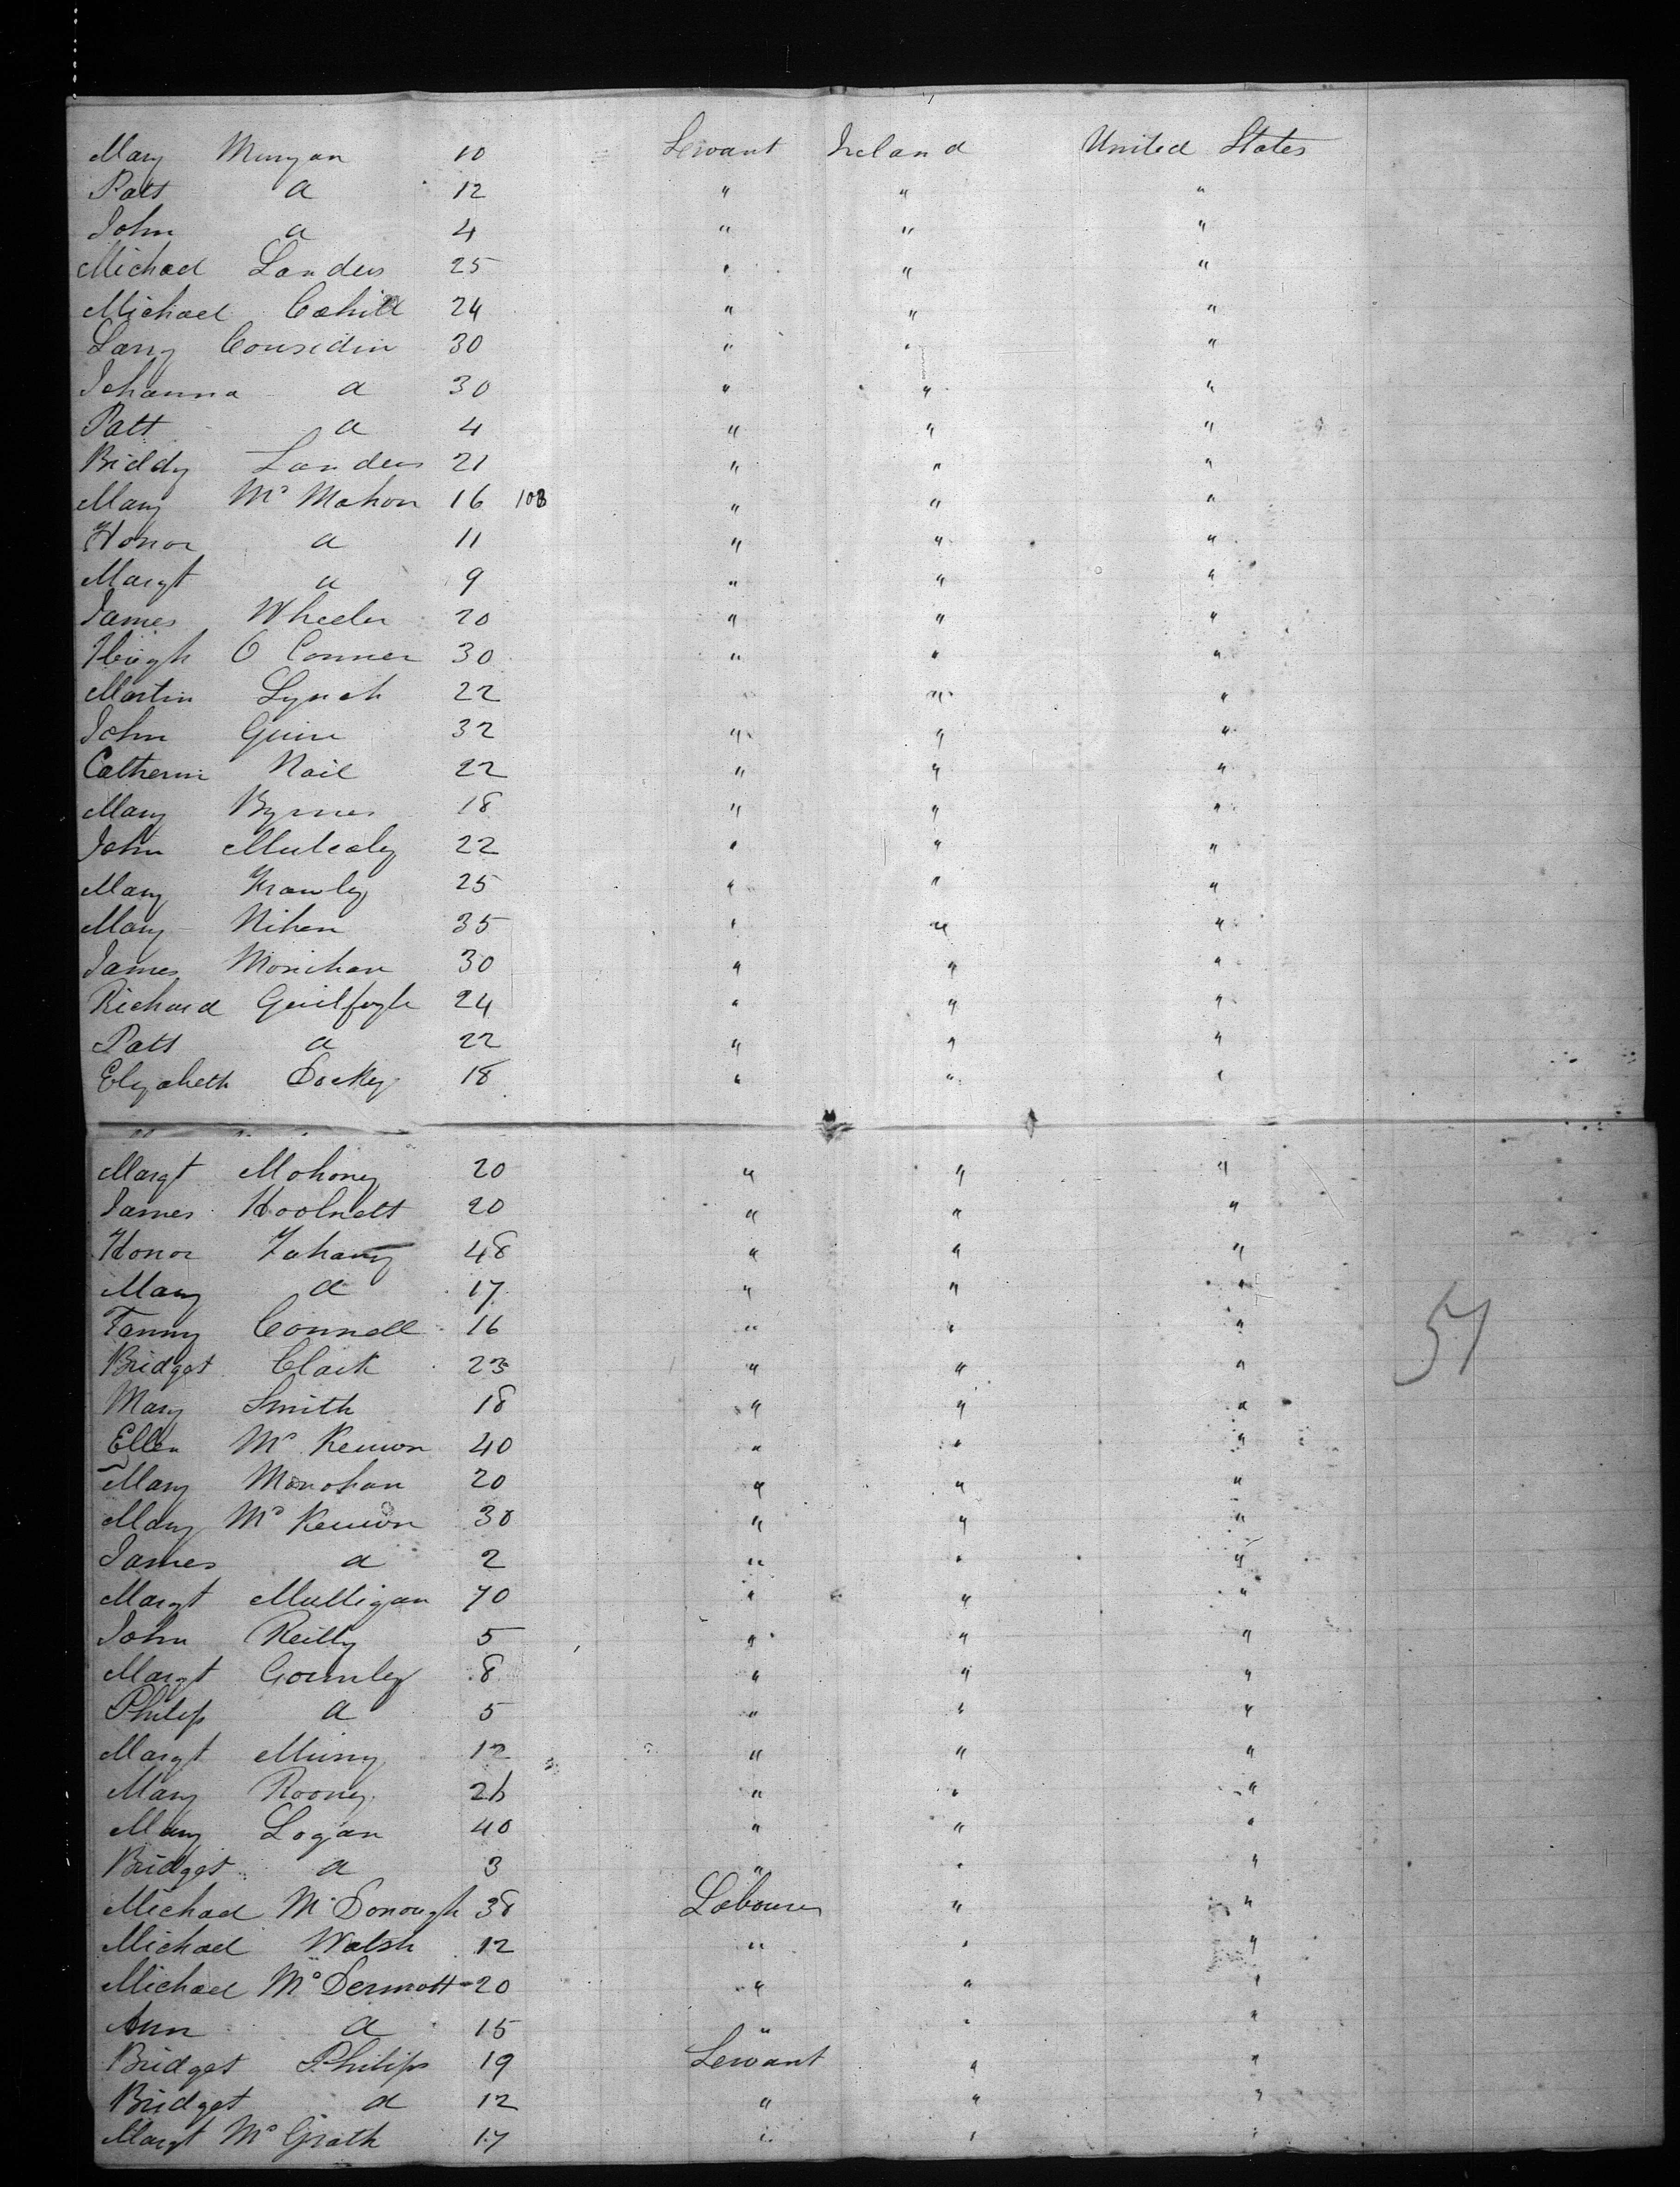 Mary Mungan 10 Servant Ireland United States
Patt a 12 " " "
John a 4 " " "
Michael Landers 25 " " "
Michael Cahill 24 " " "
Larry Considin 30 " " "
Johanna a 30 " " "
Patt a 4 " " "
Biddy Landers 21 " " "
Mary Mc Mahon 16 108 " " "
Honor a 11 " " "
Margt a 9 " " "
James Wheeler 20 " " "
Hugh O Conner 30 " " "
Martin Lynch 22 " "
John Guin 32 " " "
Catherin Nail 22 " " "
Mary Byrnes 18 " " "
John Mulcaly 22 " " "
Mary Frawley 25 " " "
Mary Nihen 35 " " "
James Monihan 30 " " "
Richard Guilfoyle 24 " " "
Patt a 22 " " "
Elizabeth Dockey 18 " " "
Margt Mohoney 20 " " "
James Hoolnett 20 " " "
Honor Fahany 48 " " "
Mary a 17 " " "
Fanny Connell 16 " " "
Bridget Clark 23 " " "
Mary Smith 18 " " "
Ellen Mc Keuwon 40 " " "
Mary Monohan 20 " " "
Mary Mc Keuwon 30 " " "
James a 2 " " "
Margt Mulligan 70 " " "
John Reilly 5 " " "
Margt Gormley 8 " " "
Philip a 5 " " "
Margt Murry 12 " " "
Mary Rooney 26 " " "
Mary Logan 40 " " "
Bridget a 3 " " "
Michael Mc Donough 38 Labourer " "
Michael Walsh 12 " " "
Michael Mc Dermott 20 " " "
Ann a 15 " " "
Bridget Philips 19 Servant " "
Bridget a 12 " " "
Margt Mc Grath 17 " " "
51